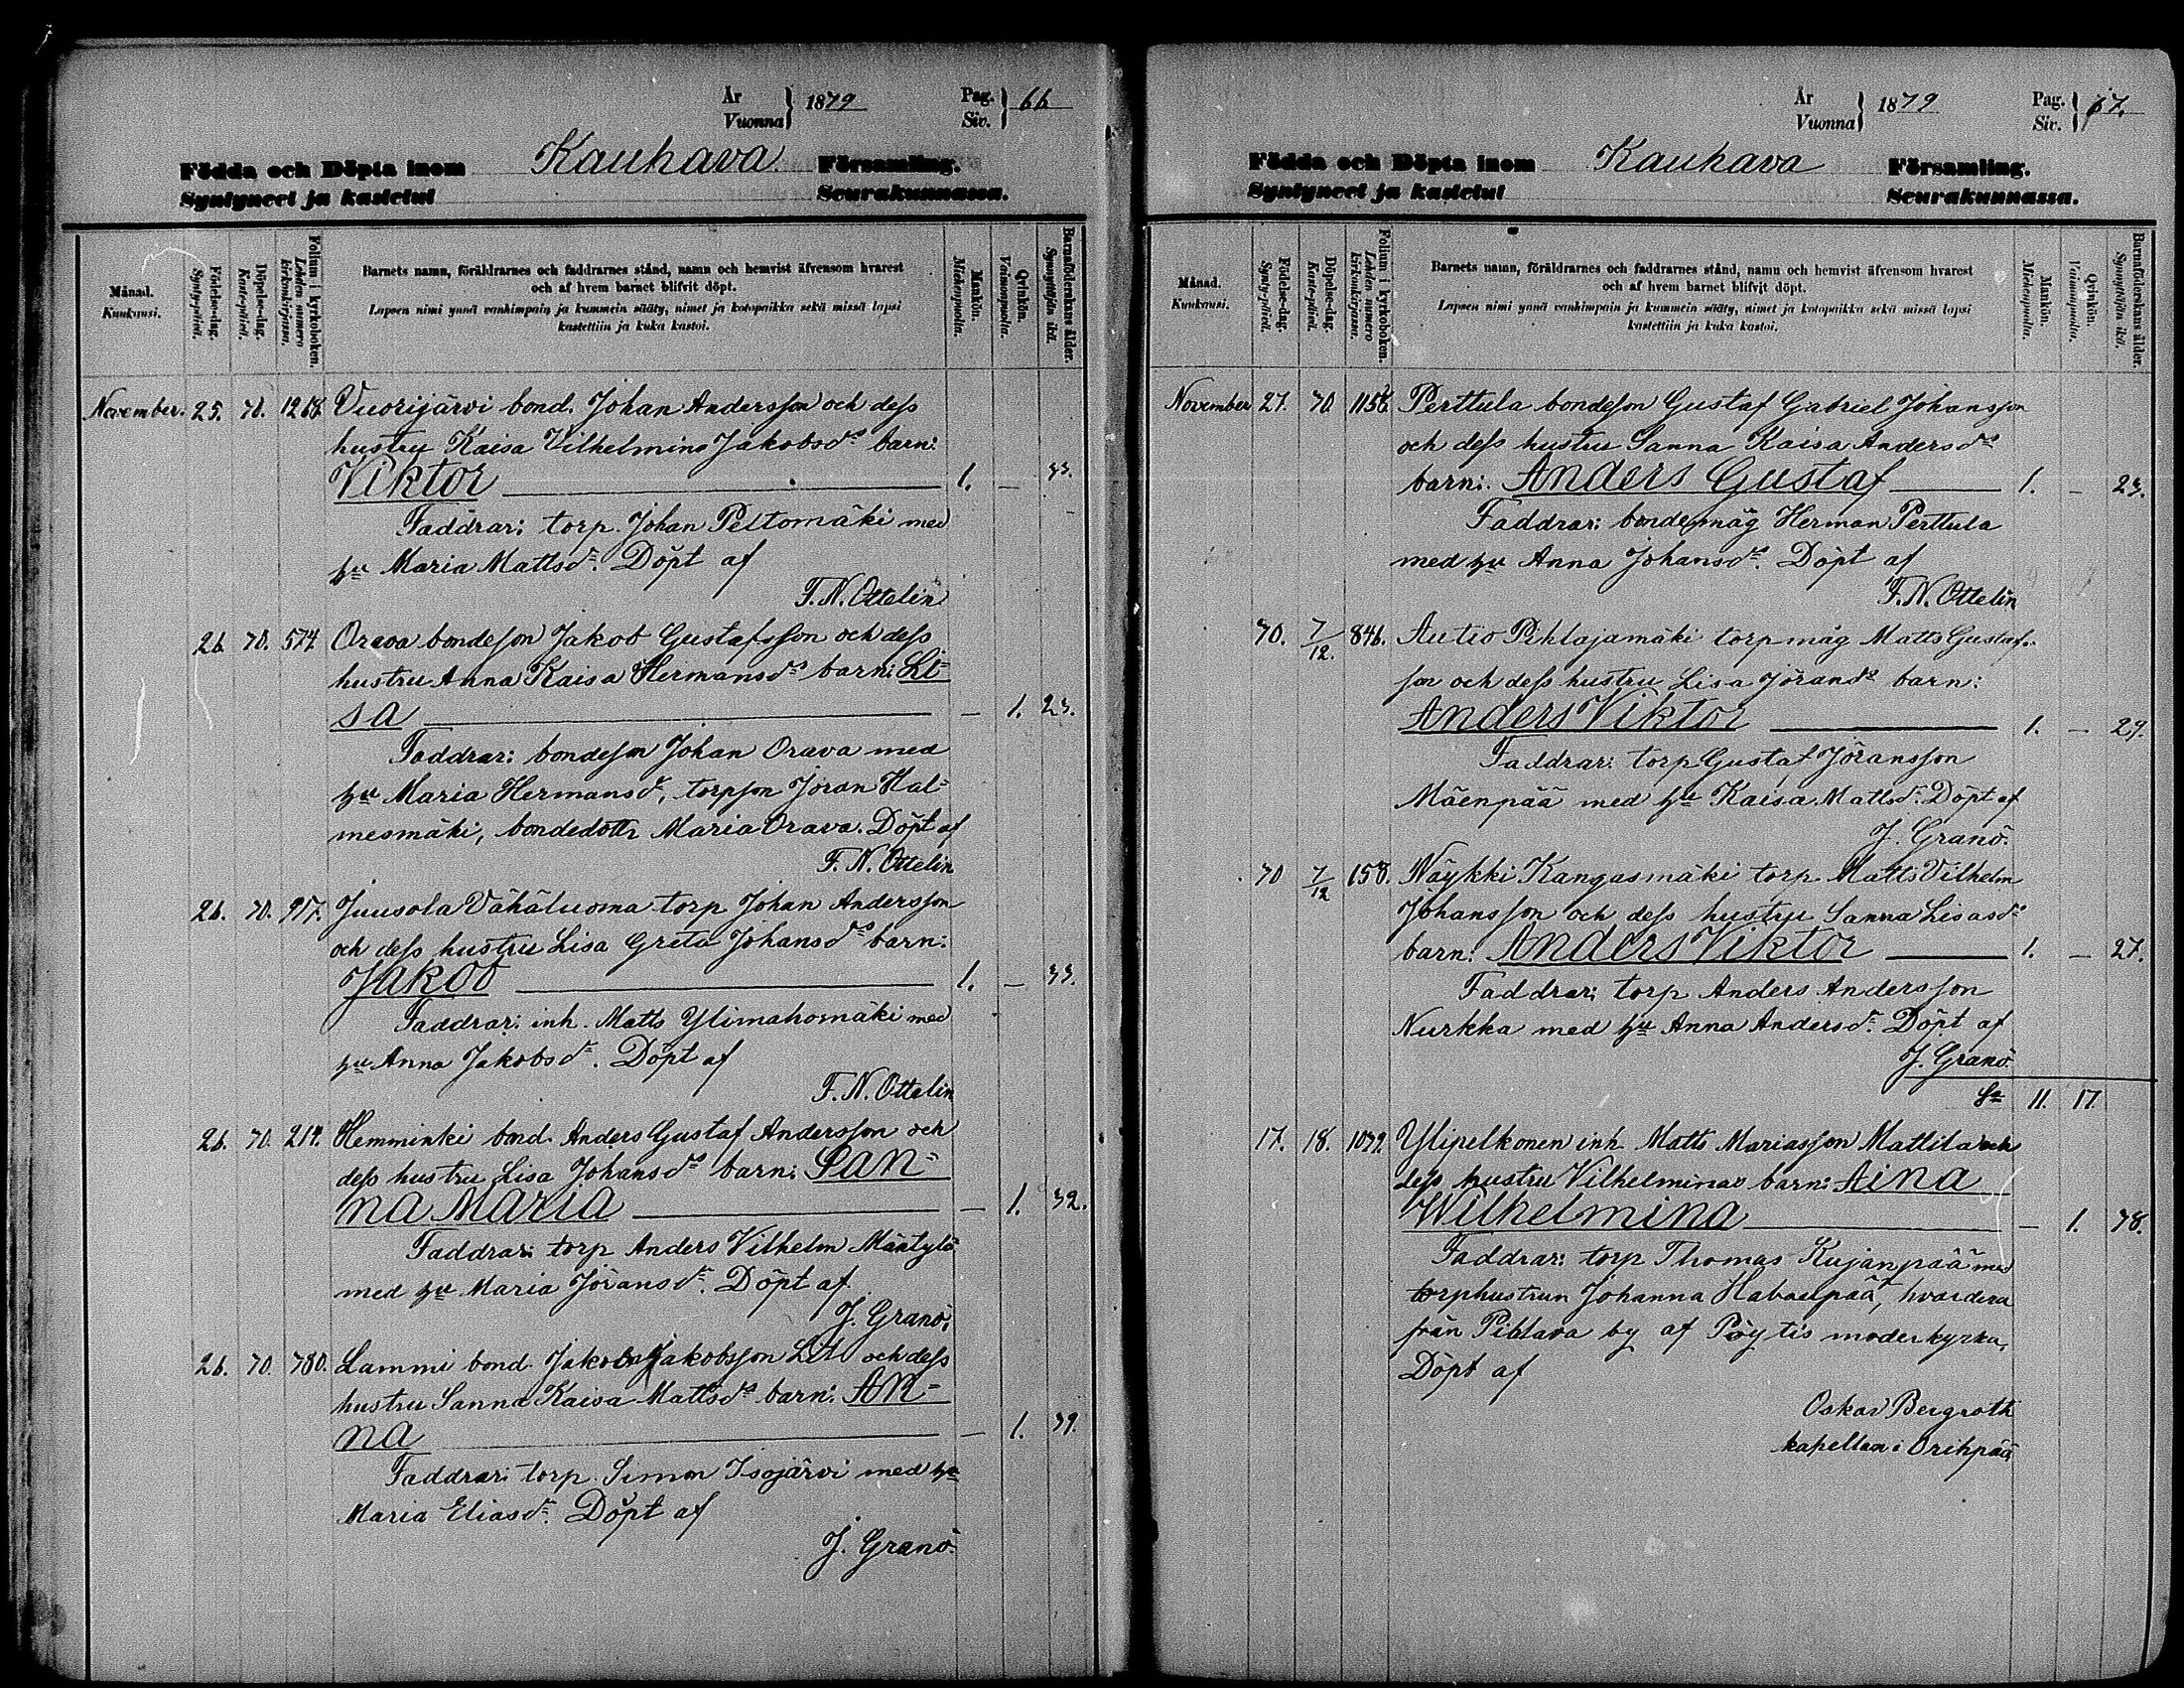 År
Vuonna } 1879
Pag.
Siv. } 66
Födda och Döpta inom Kauhava Församling.
Syntyneet ja kastetut Seurakunnassa.
Månad.
Kuukausi.
Födelse-dag.
Synty-päivä.
Döpelse-dag.
Kaste-päivä.
Folium i kyrkoboken.
Lehden numero kirkonkirjassa.
Barnets namn, föräldrarnes och faddrarnes stånd, namn och hemvist äfvensom hvarest
och af hvem barnet blifvit döpt.
Lapsen nimi ynnä vanhimpain ja kummein sääty, nimet ja kotopaikka sekä missä lapsi
kastettiin ja kuka kastoi.
Mankön.
Miehenpuolta.
Qvinkön.
Vaimonpuolta.
Barnaföderskans ålder.
Synnyttäjän ikä.
November. 25. 30. 1268. Vuorijärvi bond. Johan Andersson och dess
hustru Kaisa Vilhelmina Jakobsds barn:
Viktor 1. — 33.
Faddrar: torp. Johan Peltomäki med
hu Maria Mattsdr. Döpt af
F. N. Ottelin
26. 30. 574. Orava bondeson Jakob Gustafsson och dess
hustru Anna Kaisa Hermansds barn: Li=
sa — 1. 23.
Faddrar: bondeson Johan Orava med
hu Maria Hermansdr, torpson Jöran Hal=
mesmäki, bondedottr Maria Orava. Döpt af
F. N. Ottelin
26. 30. 917. Juusola Vähäluoma torp Johan Andersson
och dess hustru Lisa Greta Johansds barn:
Jakob 1. — 33.
Faddrar: inh. Matts Ylimahomäki med
hu Anna Jakobsdr. Döpt af
F. N. Ottelin
26. 30. 214. Hemminki bond. Anders Gustaf Andersson och
dess hustru Lisa Johansds barn: San=
na Maria — 1. 32.
Faddrar: torp Anders Vilhelm Mäntylä
med hu Maria Jöransdr. Döpt af
J. Granö.
26. 30. 780. Lammi bond. Jakob Jakobsson Lill och dess
hustru Sanna Kaisa Mattsds barn: An=
na — 1. 39.
Faddrar: torp. Simon Isojärvi med hu
Maria Eliasdr. Döpt af
J. Granö.
År
Vuonna } 1879
Pag.
Siv. } 67.
Födda och Döpta inom Kauhava Församling.
Syntyneet ja kastetut Seurakunnassa.
Månad.
Kuukausi.
Födelse-dag.
Synty-päivä.
Döpelse-dag.
Kaste-päivä.
Folium i kyrkoboken.
Lehden numero kirkonkirjassa.
Barnets namn, föräldrarnes och faddrarnes stånd, namn och hemvist äfvensom hvarest
och af hvem barnet blifvit döpt.
Lapsen nimi ynnä vanhimpain ja kummein sääty, nimet ja kotopaikka sekä missä lapsi
kastettiin ja kuka kastoi.
Mankön.
Miehenpuolta.
Qvinkön.
Vaimonpuolta.
Barnaföderskans ålder.
Synnyttäjän ikä.
November 27. 30. Perttula bondeson Gustaf Gabriel Johansson
och dess hustru Sanna Kaisa Andersds
barn: Anders Gustaf 1. — 23.
Faddrar: bondemåg Herman Perttula
med hu Anna Johansdr. Döpt af
F. N. Ottelin
30. 7/12. 846. Autio Pihlajamäki torpmåg Matts Gustafs-
son och dess hustru Lisa Jörands barn:
Anders Viktor 1. — 29.
Faddrar: torp Gustaf Jöransson
Mäenpää med hu Kaisa Mattsdr. Döpt af
J. Granö.
30 7/12 158. Näykki Kangasmäki torp Matts Vilhelm
Johansson och dess hustru Sanna Lisasdr
barn: Anders Viktor 1. — 27.
Faddrar: torp Anders Andersson
Nurkka med hu Anna Andersdr. Döpt af
J. Granö.
Sa 11. 17.
17. 18. 1092. Ylipelkonen inh. Matts Mariasson Mattila och
dess hustru Vilhelminas barn: Aina
Wilhelmina — 1. 38.
Faddrar: torp Thomas Kujanpää med
torphustrun Johanna, hvardera
från Pihlava by af Pöytis moderkyrka,
Döpt af
Oskar Bergroth
kapellan i Orihpää